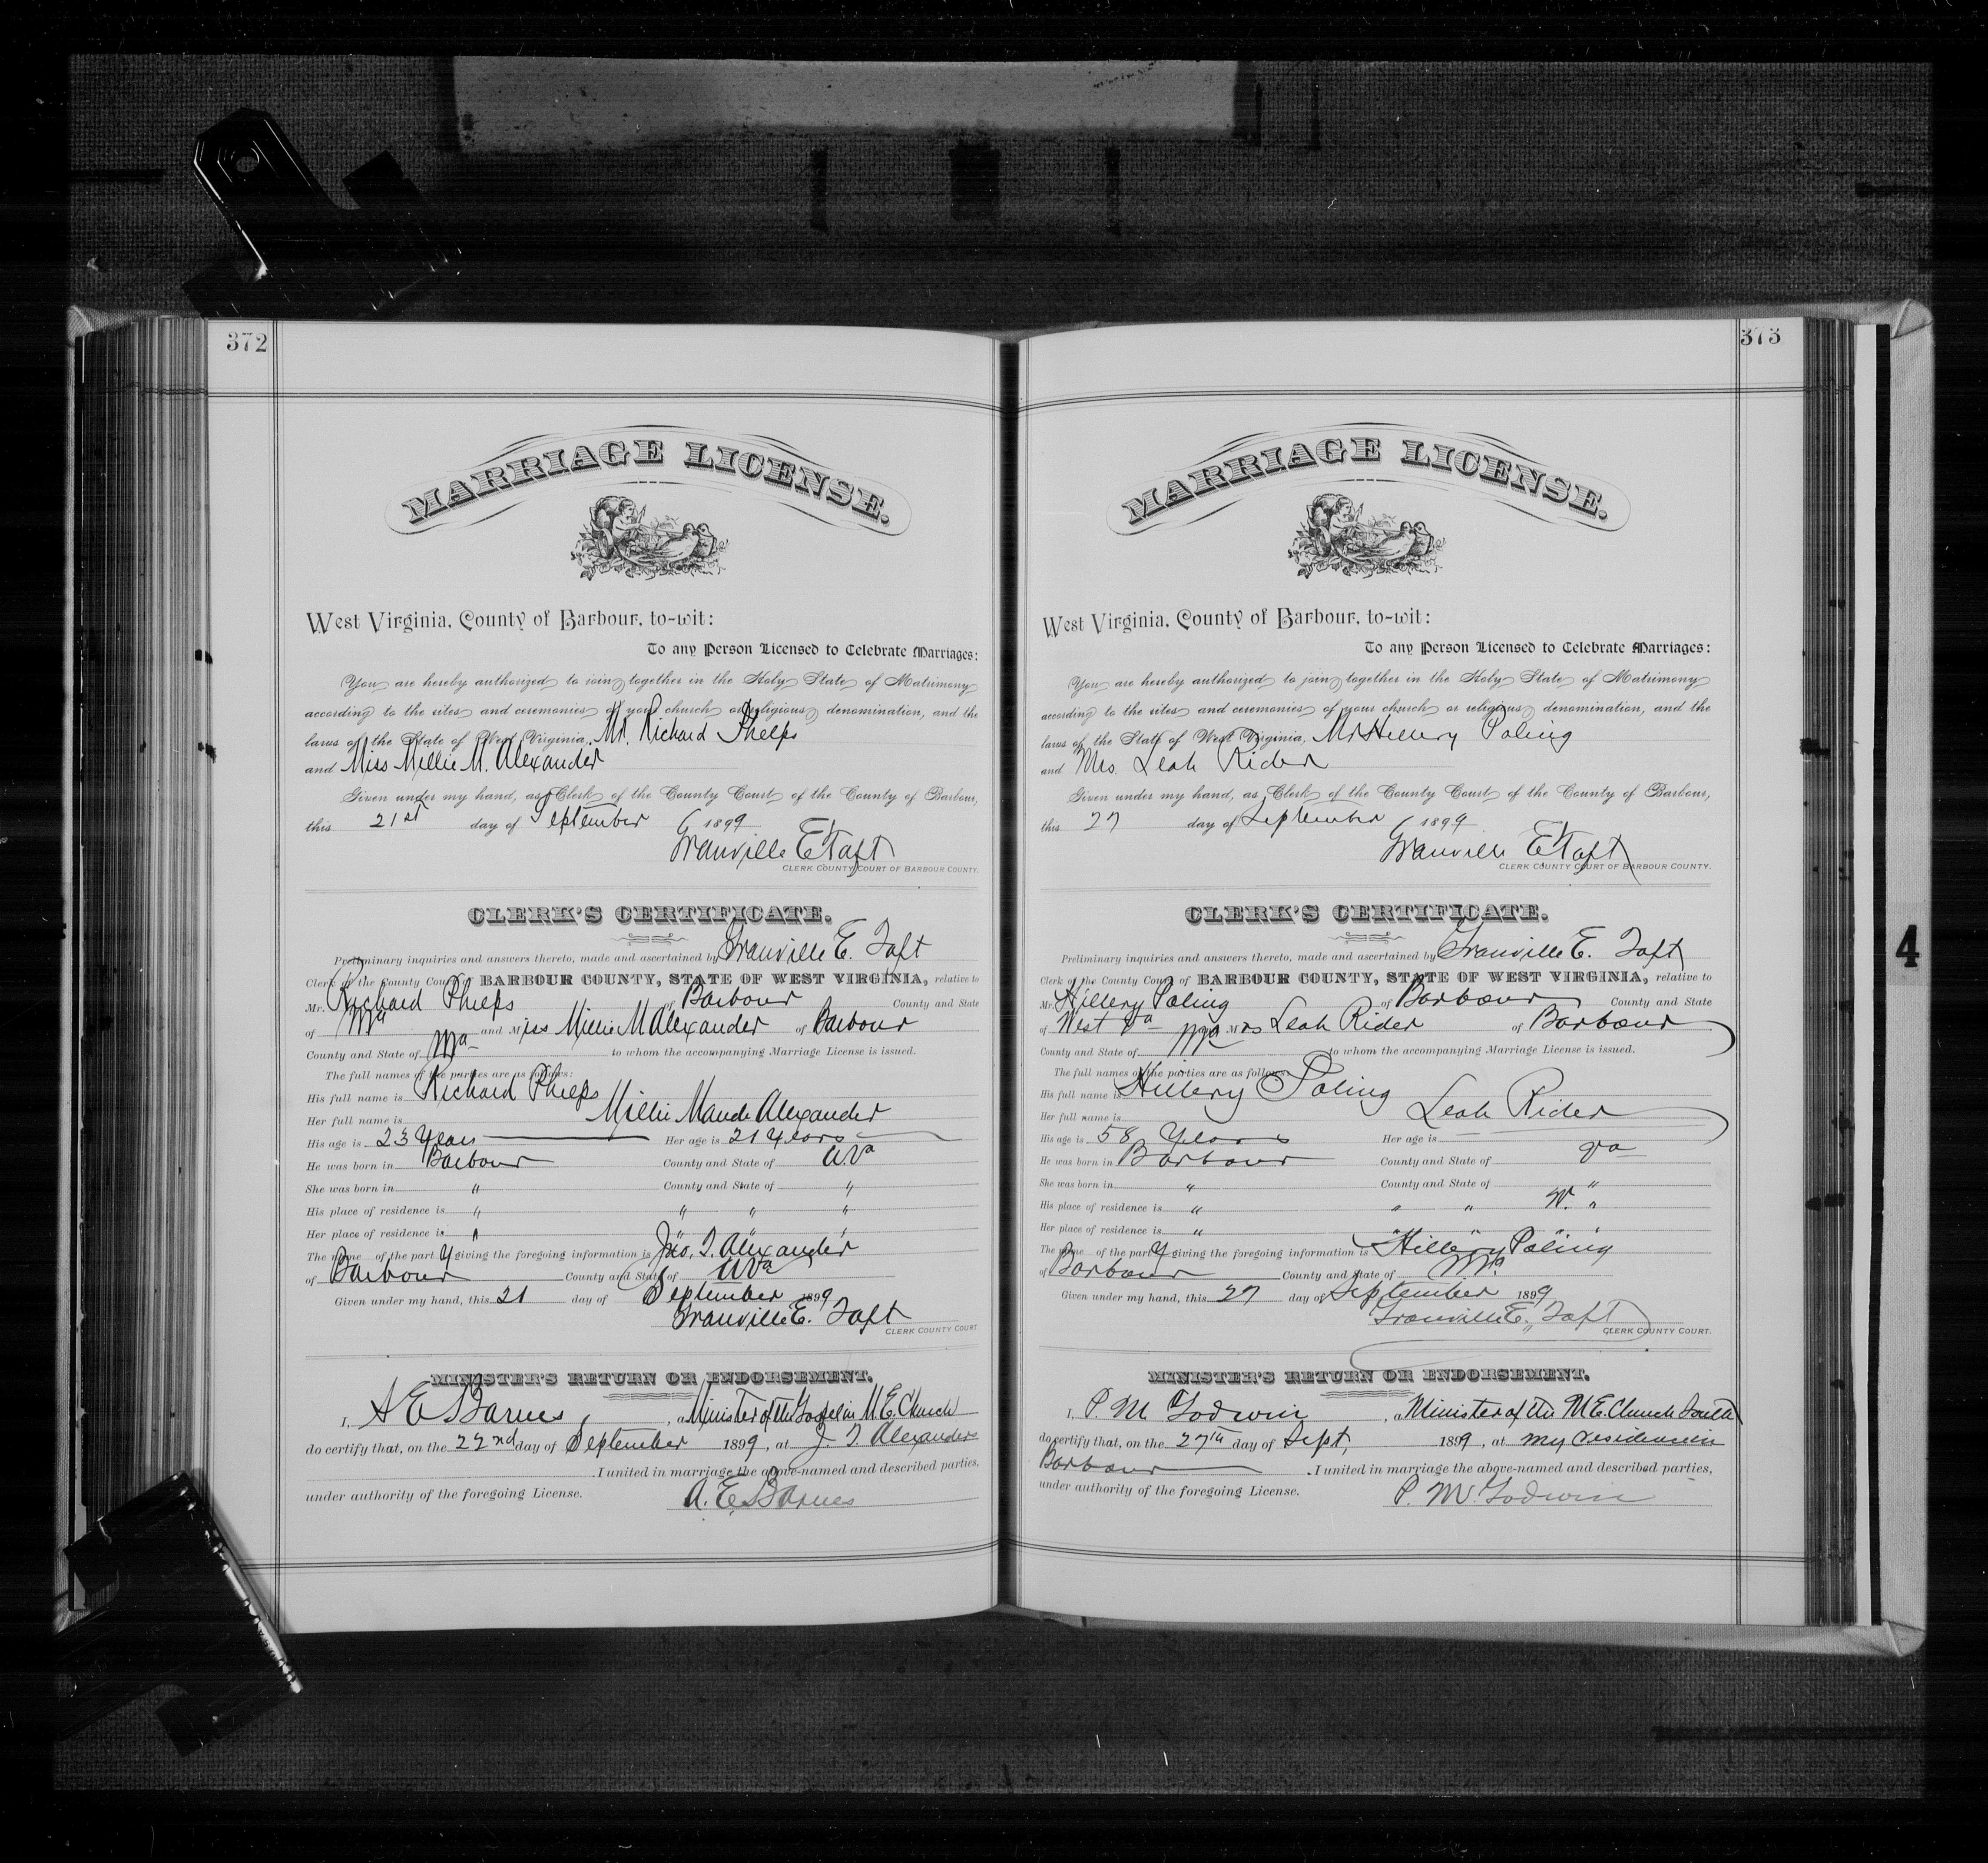 372
MARRIAGE LICENSE.
West Virginia, County of Barbour, to-wit:
To any Person Licensed to Celebrate Marriages:
You are hereby authorized to join together in the Holy State of Matrimony
according to the rites and ceremonies of your church or religious denomination, and the
laws of the State of West Virginia, Mr. Richard Phelps
and Miss Millie M. Alexander
Given under my hand, as Clerk of the County Court of the County of Barbour,
this 21st day of September 1899
Granville E Taft
CLERK COUNTY COURT OF BARBOUR COUNTY.
CLERK'S CERTIFICATE.
Preliminary inquiries and answers thereto, made and ascertained by Granville E. Taft
Clerk of the County Court of BARBOUR COUNTY, STATE OF WEST VIRGINIA, relative to
Mr. Richard Phelps of Barbour County and State
of WVa and Miss Millie M Alexander of Barbour
County and State of WVa to whom the accompanying Marriage License is issued.
The full names of the parties are as follows:
His full name is Richard Phelps
Her full name is Millie Maude Alexander
His age is 23 Years Her age is 21 Years
He was born in Barbour County and State of WVa
She was born in " County and State of "
His place of residence is " " " "
Her place of residence is " " " "
The name of the party giving the foregoing information is Jno. T. Alexander
of Barbour County and State of WVa
Given under my hand, this 21 day of September 1899
Granville E. Taft
CLERK COUNTY COURT
MINISTER'S RETURN OR ENDORSEMENT.
I, A E Barnes, a Minister of the Gospel in M. E. Church
do certify that, on the 22nd day of September 1899, at J. T. Alexanders
I united in marriage the above-named and described parties,
under authority of the foregoing License.
A. E. Barnes
373
MARRIAGE LICENSE.
West Virginia, County of Barbour, to-wit:
To any Person Licensed to Celebrate Marriages:
You are hereby authorized to join together in the Holy State of Matrimony
according to the rites and ceremonies of your church or religious denomination, and the
laws of the State of West Virginia, Mr Hillery Poling
and Mrs. Leah Rider
Given under my hand, as Clerk of the County Court of the County of Barbour,
this 27 day of September 1899
Granville E Taft
CLERK COUNTY COURT OF BARBOUR COUNTY.
CLERK'S CERTIFICATE.
Preliminary inquiries and answers thereto, made and ascertained by Granville E. Taft
Clerk of the County Court of BARBOUR COUNTY, STATE OF WEST VIRGINIA, relative to
Mr. Hillery Poling of Barbour County and State
of West Va and Mrs Leah Rider of Barbour
County and State of WVa to whom the accompanying Marriage License is issued.
The full names of the parties are as follows:
His full name is Hillery Poling
Her full name is Leah Rider
His age is 58 Years Her age is
He was born in Barbour County and State of Va
She was born in " County and State of "
His place of residence is " " " W. "
Her place of residence is " " " "
The name of the party giving the foregoing information is Hillery Poling
of Barbour County and State of WVa
Given under my hand, this 27 day of September 1899
Granville E. Taft
CLERK COUNTY COURT.
MINISTER'S RETURN OR ENDORSEMENT.
I, P. M. Godwin, a Minister of the M E. Church South
do certify that, on the 27th day of Sept, 1899, at my residence in
Barbour I united in marriage the above-named and described parties,
under authority of the foregoing License.
P. M. Godwin
4